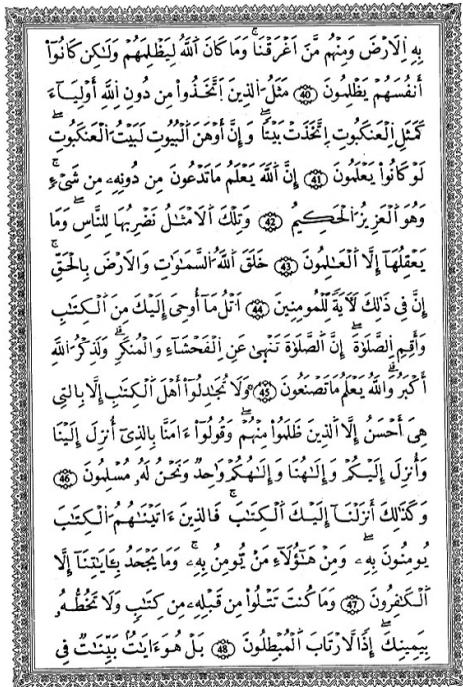 بِهِ اِ۬لَارْضَ وَمِنْهُم مَّنَ اَغْرَقْنَاۖ وَمَا كَانَ اَ۬للَّهُ لِيَظْلِمَهُمْ وَلَٰكِن كَانُوٓاْ
أَنفُسَهُمْ يَظْلِمُونَ 40 مَثَلُ اُ۬لذِينَ اَ۪تَّخَذُواْ مِن دُونِ اِ۬للَّهِ أَوْلِيَآءَ
كَمَثَلِ اِ۬لْعَنكَبُوتِ اِ۪تَّخَذَتْ بَيْتاٗۖ وَإِنَّ أَوْهَنَ اَ۬لْبُيُوتِ لَبَيْتُ اُ۬لْعَنكَبُوتِۖ
لَوْ كَانُواْ يَعْلَمُونَ 41 إِنَّ اَ۬للَّهَ يَعْلَمُ مَا تَدْعُونَ مِن دُونِهِۦ مِن شَےْءٖۖ
وَهُوَ اَ۬لْعَزِيزُ اُ۬لْحَكِيمُ 42 وَتِلْكَ اَ۬لَامْثَٰلُ نَضْرِبُهَا لِلنَّاسِۖ وَمَا
يَعْقِلُهَآ إِلَّا اَ۬لْعَٰلِمُونَ 43 خَلَقَ اَ۬للَّهُ اُ۬لسَّمَٰوَٰتِ وَالَارْضَ بِالْحَقِّۖ
إِنَّ فِے ذَٰلِكَ لَأٓيَةٗ لِّلْمُومِنِينَ 44 اَ۟تْلُ مَآ أُوحِيَ إِلَيْكَ مِنَ اَ۬لْكِتَٰبِ
وَأَقِمِ اِ۬لصَّلَوٰةَۖ إِنَّ اَ۬لصَّلَوٰةَ تَنْهَىٰ عَنِ اِ۬لْفَحْشَآءِ وَالْمُنكَرِۖ وَلَذِكْرُ اُ۬للَّهِ
أَكْبَرُۖ وَاللَّهُ يَعْلَمُ مَا تَصْنَعُونَ 45 وَلَا تُجَٰدِلُوٓاْ أَهْلَ اَ۬لْكِتَٰبِ إِلَّا بِالتِے
هِيَ أَحْسَنُ إِلَّا اَ۬لذِينَ ظَلَمُواْ مِنْهُمْۖ وَقُولُوٓاْ ءَامَنَّا بِالذِےٓ أُنزِلَ إِلَيْنَا
وَأُنزِلَ إِلَيْكُمْ وَإِلَٰهُنَا وَإِلَٰهُكُمْ وَٰحِدٞ وَنَحْنُ لَهُۥ مُسْلِمُونَ 46
وَكَذَٰلِكَ أَنزَلْنَآ إِلَيْكَ اَ۬لْكِتَٰبَۖ فَالذِينَ ءَاتَيْنَٰهُمُ اُ۬لْكِتَٰبَ
يُومِنُونَ بِهِۦۖ وَمِنْ هَٰٓؤُلَآءِ مَنْ يُّومِنُ بِهِۦۖ وَمَا يَجْحَدُ بِـَٔايَٰتِنَآ إِلَّا
اَ۬لْكَٰفِرُونَ 47 وَمَا كُنتَ تَتْلُواْ مِن قَبْلِهِۦ مِن كِتَٰبٖ وَلَا تَخُطُّهُۥ
بِيَمِينِكَۖ إِذاٗ لَّارْتَابَ اَ۬لْمُبْطِلُونَ 48 بَلْ هُوَ ءَايَٰتُۢ بَيِّنَٰتٞ فِے